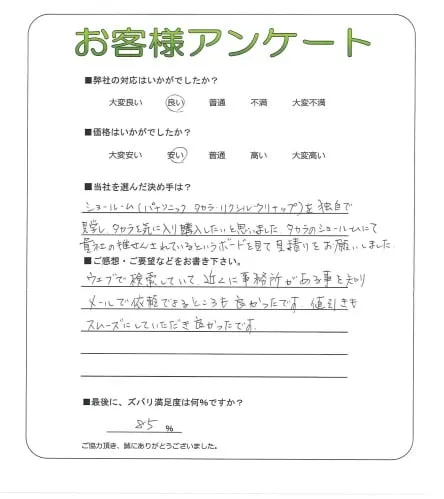 お客様アンケート
■弊社の対応はいかがでしたか？
大変良い 良い 普通 不満 大変不満
■価格はいかがでしたか？
大変安い 安い 普通 高い 大変高い
■当社を選んだ決め手は？
ショールーム(パナソニック タカラ・リクシル・クリナップ)を独自で
見学し、タカラを気に入り購入したいと思いました。タカラのショールームにて
貴社の推せんされているというボードを見て見積りをお願いしました。
■ご感想・ご要望などをお書き下さい。
ウェブで検索していて、近くに事務所がある事を知り
メールで依頼できるところも良かったです。値引きも
スムーズにしていただき良かったです。
■最後に、ズバリ満足度は何%ですか？
85 %
ご協力頂き、誠にありがとうございました。